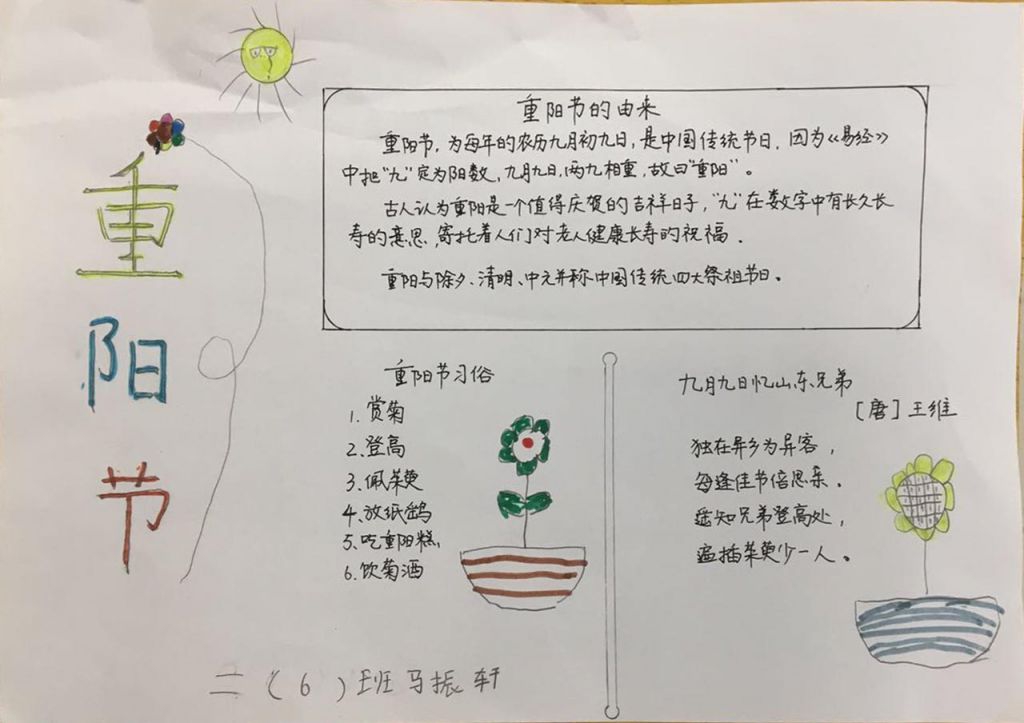 重阳节
重阳节的由来
重阳节，为每年的农历九月初九日，是中国传统节日，因为《易经》
中把“九”定为阳数，九月九日，两九相重，故曰“重阳”。
古人认为重阳是一个值得庆贺的吉祥日子，“九”在数字中有长久长
寿的意思，寄托着人们对老人健康长寿的祝福．
重阳与除夕、清明、中元并称中国传统四大祭祖节日。
重阳节习俗
1.赏菊
2.登高
3.佩茱萸
4.放纸鸢
5.吃重阳糕，
6.饮菊酒
九月九日忆山东兄弟
［唐］王维
独在异乡为异客，
每逢佳节倍思亲．
遥知兄弟登高处，
遍插茱萸少一人。
二（6）班马振轩